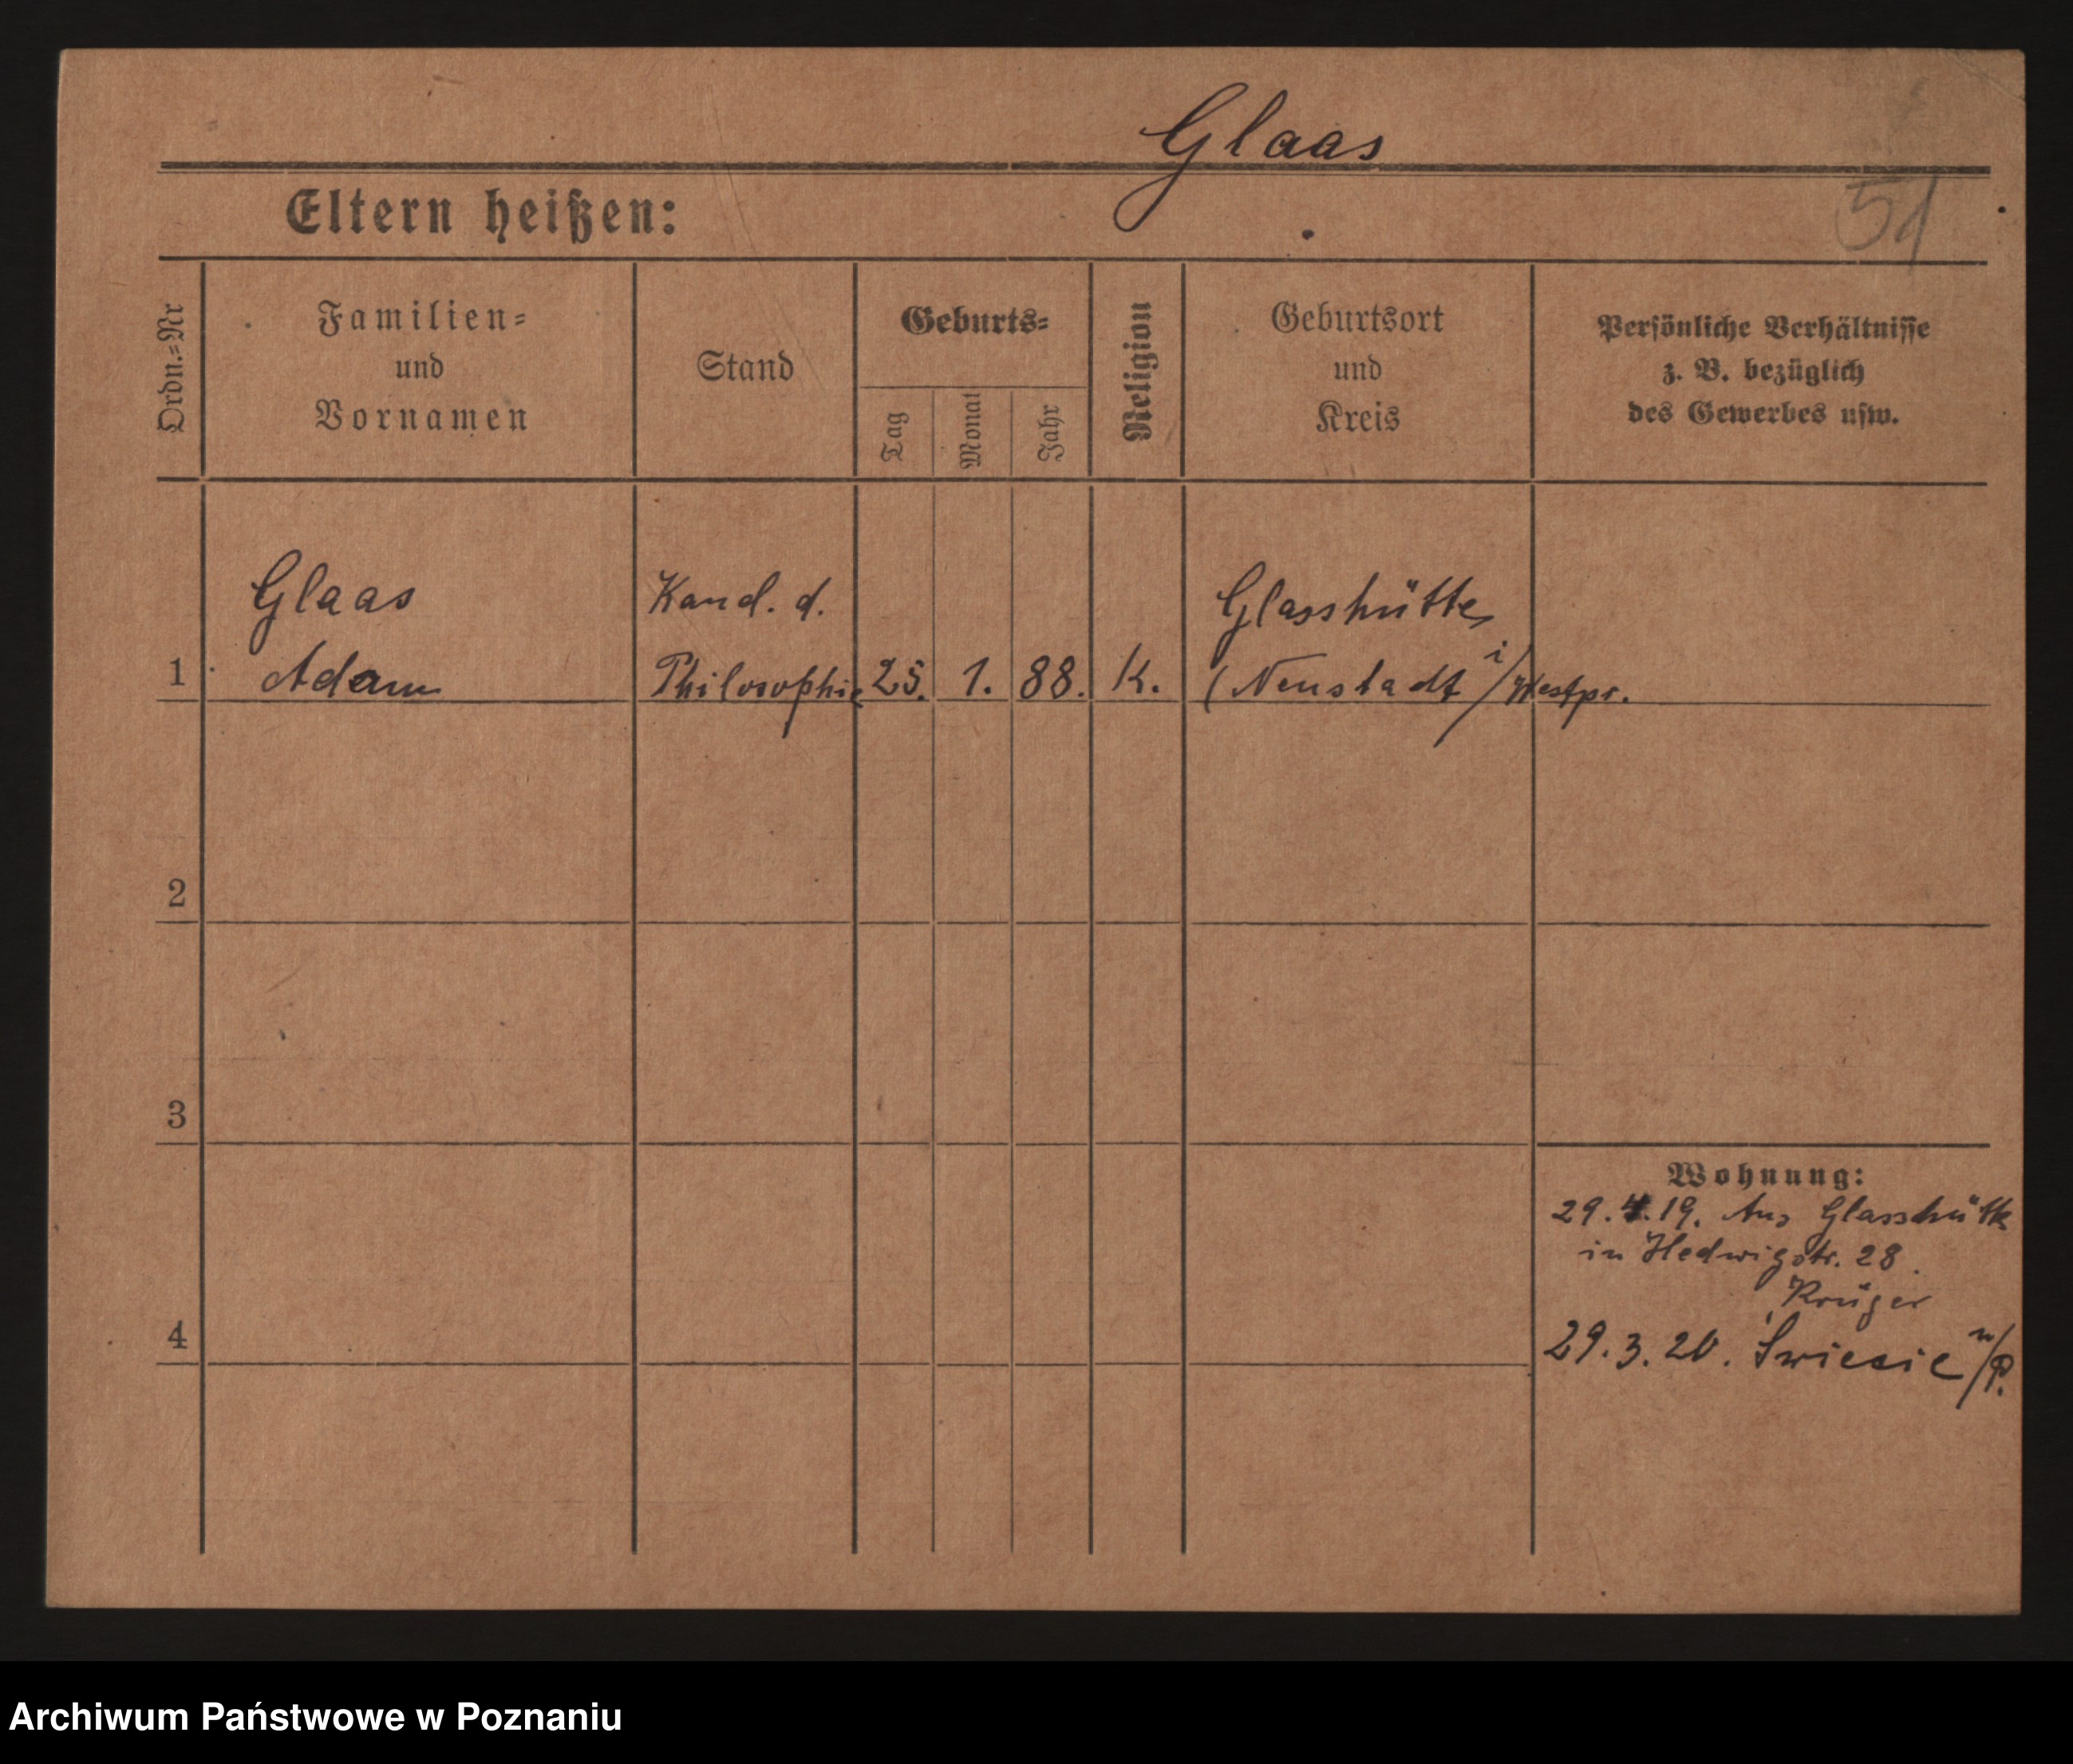 Glaas
Eltern heißen:
51
Ordn.=Nr
Familien=
und
Vornamen
Stand
Geburts=
Tag
Monat
Jahr
Religion
Geburtsort
und
Kreis
Persönliche Verhältnisse
z. B. bezüglich
des Gewerbes usw.
Glaas
Kand. d.
Glasshütte,
1
Adam
Philosophie
25.
1.
88.
K.
(Neustadt i/Westpr.
2
3
Wohnung:
29.4.19. Aus Glasshütte
in Hedwigstr. 28.
Krüger
4
29.3.20.
Archiwum Państwowe w Poznaniu